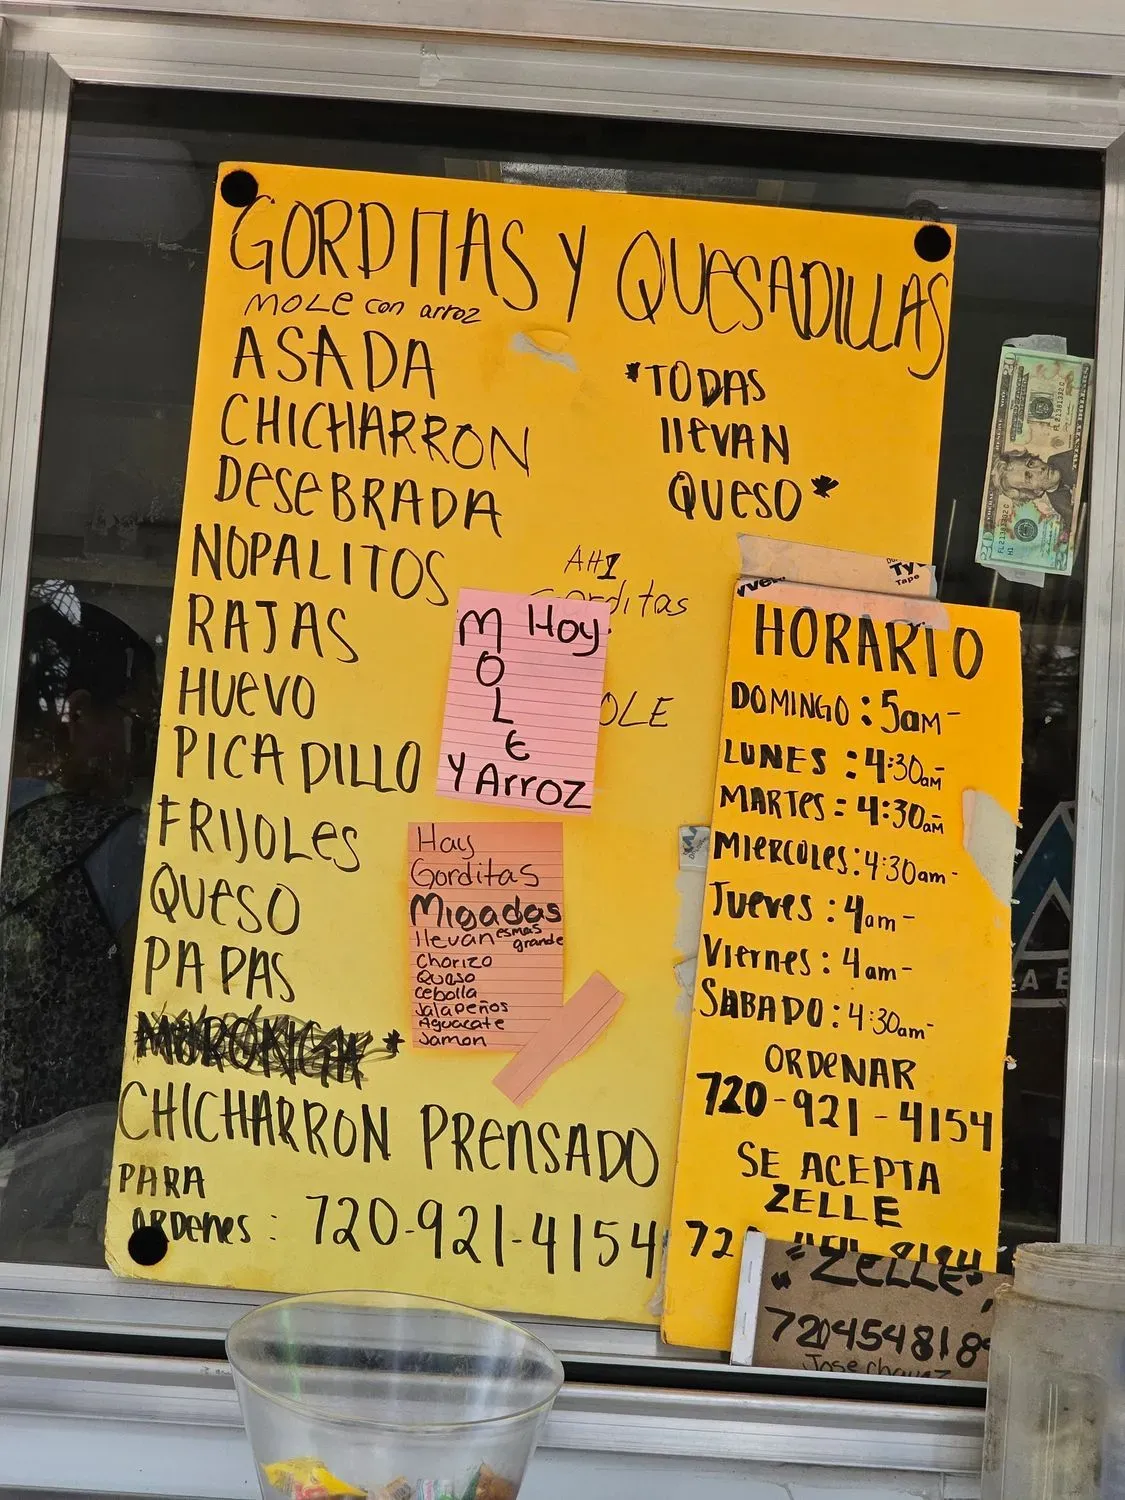 GORDITAS Y QUESADILLAS
MOLE con arroz
ASADA
CHICHARRON
DESEBRADA
NOPALITOS
RAJAS
HUEVO
PICADILLO
FRIJOLES
QUESO
PAPAS
*
CHICHARRON PRENSADO
PARA
ORDENES: 720-921-4154
*TODAS
llEVAN
QUESO*
AHI
Gorditas
OLE
M Hoy
O
L
E
Y Arroz
Hay
Gorditas
Migadas
llevan es mas grande
Chorizo
Queso
Cebolla
Jalapeños
Aguacate
Jamon
HORARIO
DOMINGO: 5am-
LUNES: 4:30am-
MARTES= 4:30am-
MIERCOLES: 4:30am-
JUEVES: 4am-
VIERNES: 4am-
SABADO: 4:30am-
ORDENAR
720-921-4154
SE ACEPTA
ZELLE
72
"ZELLE"
720454818
Jose chavez
Tape